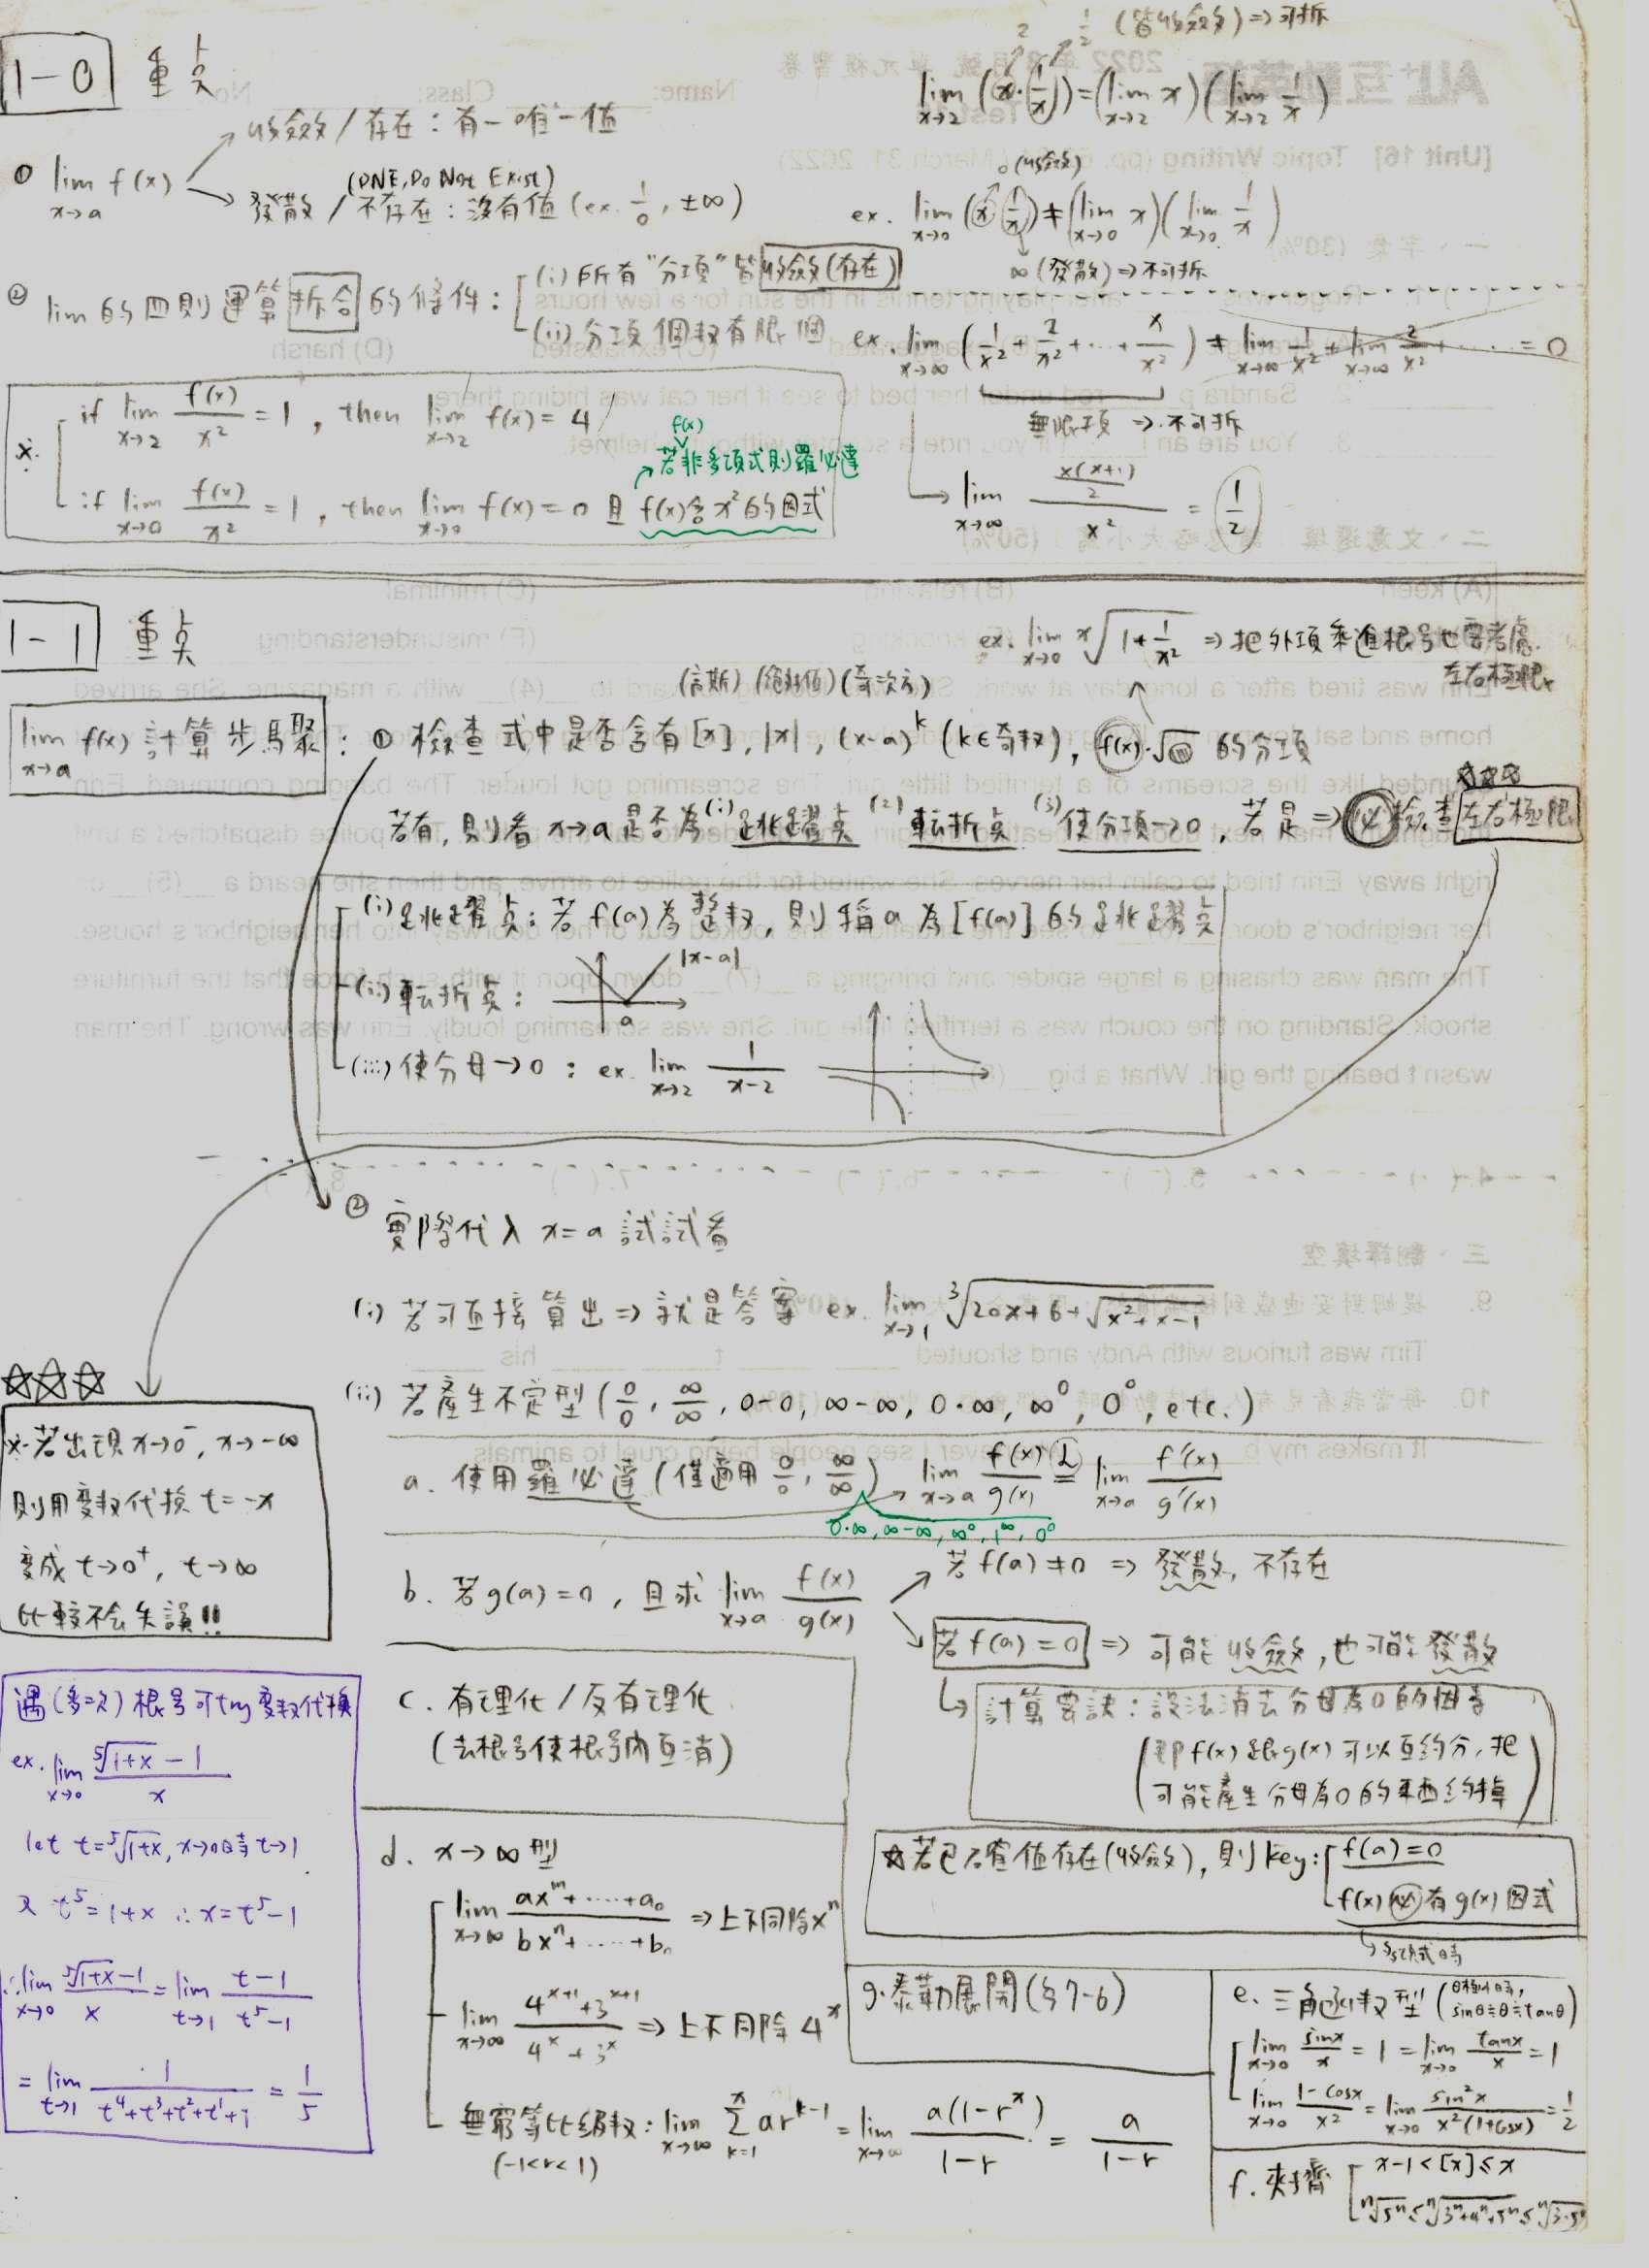 1-0 重点
① lim x→a f(x)
收斂/存在：有一唯一值
(DNE, Do Not Exist)
發散/不存在：沒有值 (ex. 1/0, ±∞)
② lim的四則運算拆合的條件：
(i) 所有"分項"皆收斂(存在)
(ii) 分項個数有限個
※ if lim x→2 f(x)/x² = 1, then lim x→2 f(x) = 4
if lim x→0 f(x)/x² = 1, then lim x→0 f(x) = 0 且 f(x)含x²的因式
f(x)
若非多項式則羅必達
2 1/2 (皆收斂) ⇒ 可拆
lim x→2 (x·1/x) = (lim x→2 x)(lim x→2 1/x)
0 (收斂)
ex. lim x→0 (x·1/x) ≠ (lim x→0 x)(lim x→0 1/x)
∞ (發散) ⇒ 不可拆
ex. lim x→∞ (1/x² + 2/x² + ... + x/x²) ≠ lim x→∞ 1/x² + lim x→∞ 2/x² + ... = 0
無限項 ⇒ 不可拆
lim x→∞ (x(x+1)/2)/x² = 1/2
1-1 重点
ex. lim x→0 x√(1+1/x²) ⇒ 把外項乘進根号也要考慮
左右極限
(高斯) (絕對值) (奇次方)
lim x→a f(x) 計算步驟：① 檢查式中是否含有 [x], |x|, (x-a)^k (k∈奇数), f(x)·√▢ 的分項
若有, 則看 x→a 是否為 (1) 跳躍点 (2) 転折点 (3) 使分項→0, 若是 ⇒ 必檢查左右極限
(i) 跳躍点：若 f(a) 為整数, 則稱 a 為 [f(a)] 的跳躍点
(ii) 転折点：
|x-a|
a
(iii) 使分母→0：ex. lim x→2 1/(x-2)
② 實際代入 x=a 試試看
(i) 若可直接算出 ⇒ 就是答案 ex. lim x→1 ³√(20x+6+√(x²+x-1))
(ii) 若產生不定型 (0/0, ∞/∞, 0-0, ∞-∞, 0·∞, ∞⁰, 0⁰, etc.)
a. 使用羅必達 (僅適用 0/0, ∞/∞) lim x→a f(x)/g(x) =(L) lim x→a f'(x)/g'(x)
0·∞, ∞-∞, ∞⁰, 1^∞, 0⁰
b. 若 g(a)=0, 且求 lim x→a f(x)/g(x)
若 f(a)≠0 ⇒ 發散, 不存在
若 f(a)=0 ⇒ 可能收斂, 也可能發散
計算要訣：設法消去分母為0的因子
(即 f(x) 跟 g(x) 可以互約分, 把
可能產生分母為0的東西約掉)
☆若已知有值存在(收斂), 則 key: f(a)=0
f(x) 必有 g(x) 因式
多項式時
c. 有理化/反有理化
(去根号使根号內互消)
d. x→∞型
lim x→∞ (ax^m+......+a₀)/(bx^n+......+b₀) ⇒ 上下同除 x^n
lim x→∞ (4^(x+1)+3^(x+1))/(4^x+3^x) ⇒ 上下同除 4^x
無窮等比級数：lim x→∞ Σ k=1 x ar^(k-1) = lim x→∞ a(1-r^x)/(1-r) = a/(1-r)
(-1<r<1)
g. 泰勒展開 (§7-6)
e. 三角函数型 (θ極小時, sinθ≒θ≒tanθ)
lim x→0 sinx/x = 1 = lim x→0 tanx/x = 1
lim x→0 (1-cosx)/x² = lim x→0 sin²x/(x²(1+cosx)) = 1/2
f. 夾擠 x-1<[x]≤x
ⁿ√(5ⁿ) ≤ ⁿ√(3ⁿ+4ⁿ+5ⁿ) ≤ ⁿ√(3·5ⁿ)
☆☆☆
※若出現 x→0⁻, x→-∞
則用変数代換 t=-x
変成 t→0⁺, t→∞
比較不会失誤!!
遇(多次)根号可try変数代換
ex. lim x→0 (⁵√(1+x) - 1)/x
let t=⁵√(1+x), x→0時 t→1
又 t⁵=1+x ∴ x=t⁵-1
∴ lim x→0 (⁵√(1+x)-1)/x = lim t→1 (t-1)/(t⁵-1)
= lim t→1 1/(t⁴+t³+t²+t¹+1) = 1/5